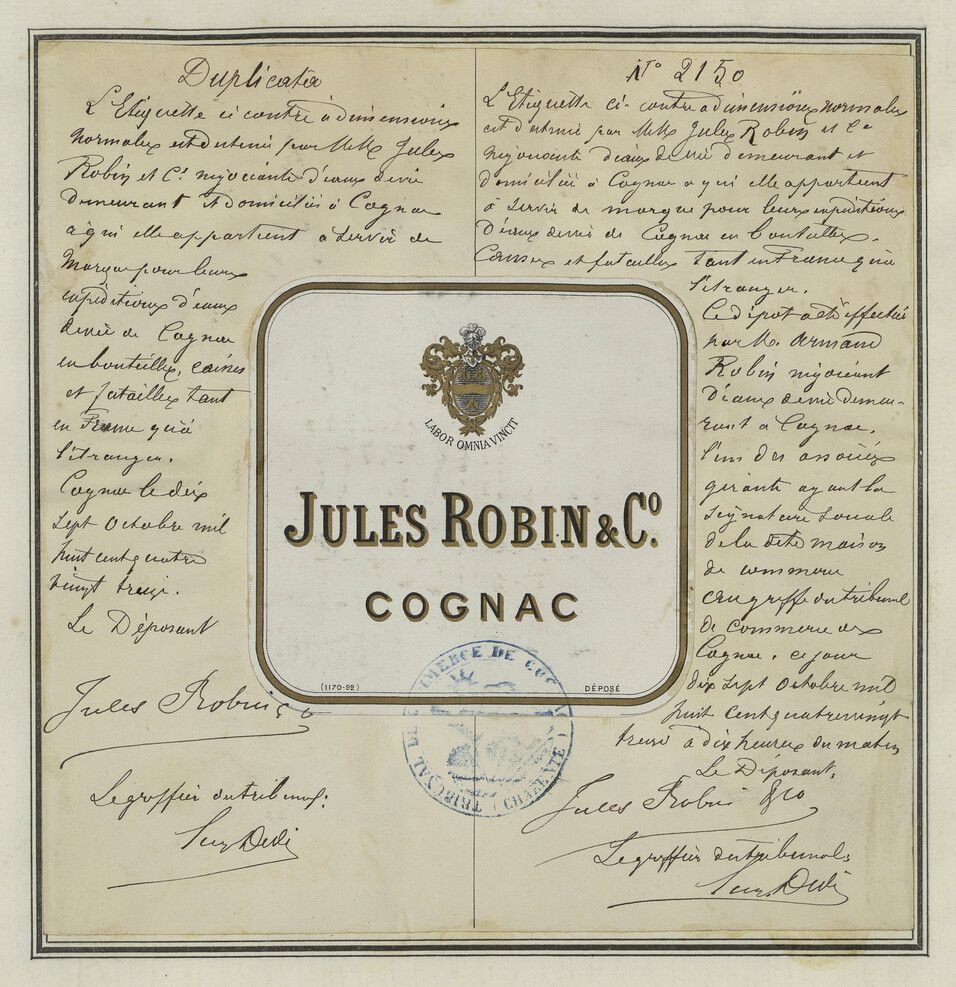 Duplicata
L'Etiquette ci contre à dimensions
normales est destinée par MM Jules
Robin et Cie négociants d'eaux de vie
demeurant et domiciliés à Cognac
à qui elle appartient à servir de
marque pour leurs
expéditions d'eaux
de vie de Cognac
en bouteilles, caisses
et futailles tant
en France qu'à
l'étranger.
Cognac le dix
sept Octobre mil
huit cent quatre
vingt treize.
Le Déposant
Jules Robin & Co
Le greffier du tribunal:
No 2150
L'Etiquette ci-contre à dimensions normales
est destinée par MM. Jules Robin et Cie
négociants d'eaux de vie demeurant et
domiciliés à Cognac à qui elle appartient
à servir de marque pour leurs expéditions
d'eaux de vie de Cognac en bouteilles,
Caisses et futailles tant en France qu'à
l'étranger.
Ce dépôt a été effectué
par M. Armand
Robin négociant
d'eaux de vie demeu-
rant à Cognac,
l'un des associés
gérants ayant la
signature sociale
de la dite maison
de commerce
au greffe du tribunal
de commerce de
Cognac, ce jour
dix sept Octobre mil
huit cent quatre vingt
treize à dix heures du matin
Le Déposant,
Jules Robin & Co
Le greffier du tribunal:
LABOR OMNIA VINCIT
JULES ROBIN & Co.
COGNAC
(1170-92)
DÉPOSÉ
TRIBUNAL DE COMMERCE DE COGNAC (CHARENTE)